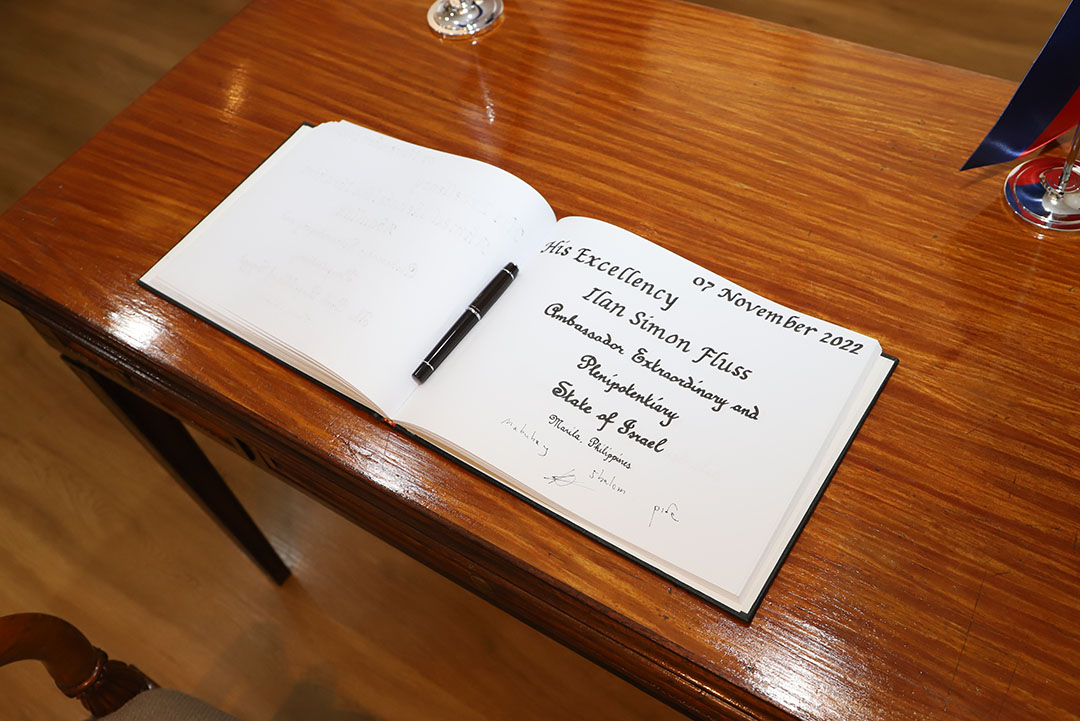 07 November 2022
His Excellency
Ilan Simon Fluss
Ambassador Extraordinary and
Plenipotentiary
State of Israel
Manila, Philippines
Mabuhay Shalom שלום